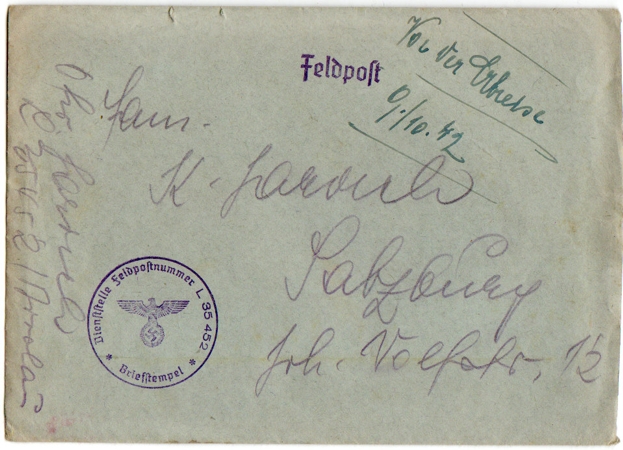 Feldpost
Von der Abreise
9./10.42
Fam.
K.
Salzburg
Joh. Wolfstr. 12
Dienststelle Feldpostnummer L 35452
* Briefstempel *
L 35452